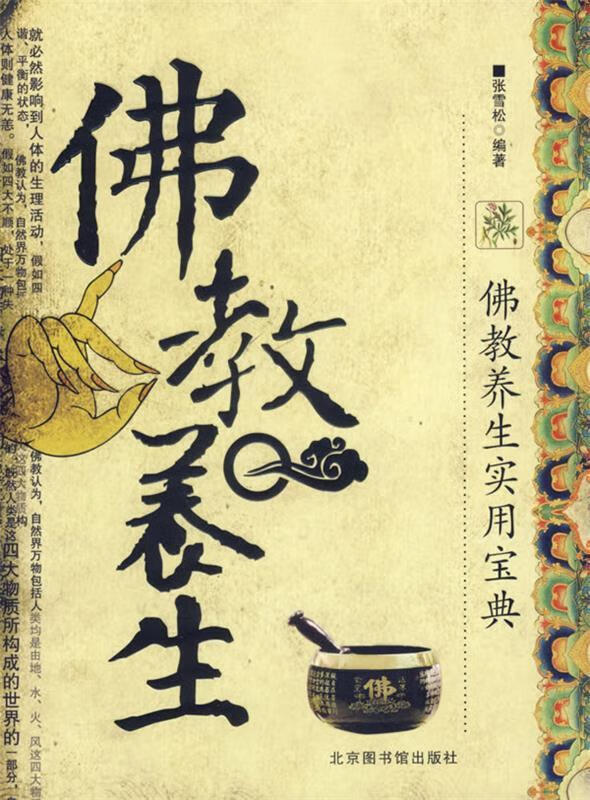 佛教养生
■张雪松◎编著
佛教养生实用宝典
就必然影响到人体的生理活动，假如四
谐、平衡的状态，
人体则健康无恙。假如四大不顺，处于一种失
佛教认为，自然界万物包括
佛教认为，自然界万物包括人类均是由地、水、火、风这四大物
既然人类是这四大物质所构成的世界的一部分，
佛
北京图书馆出版社